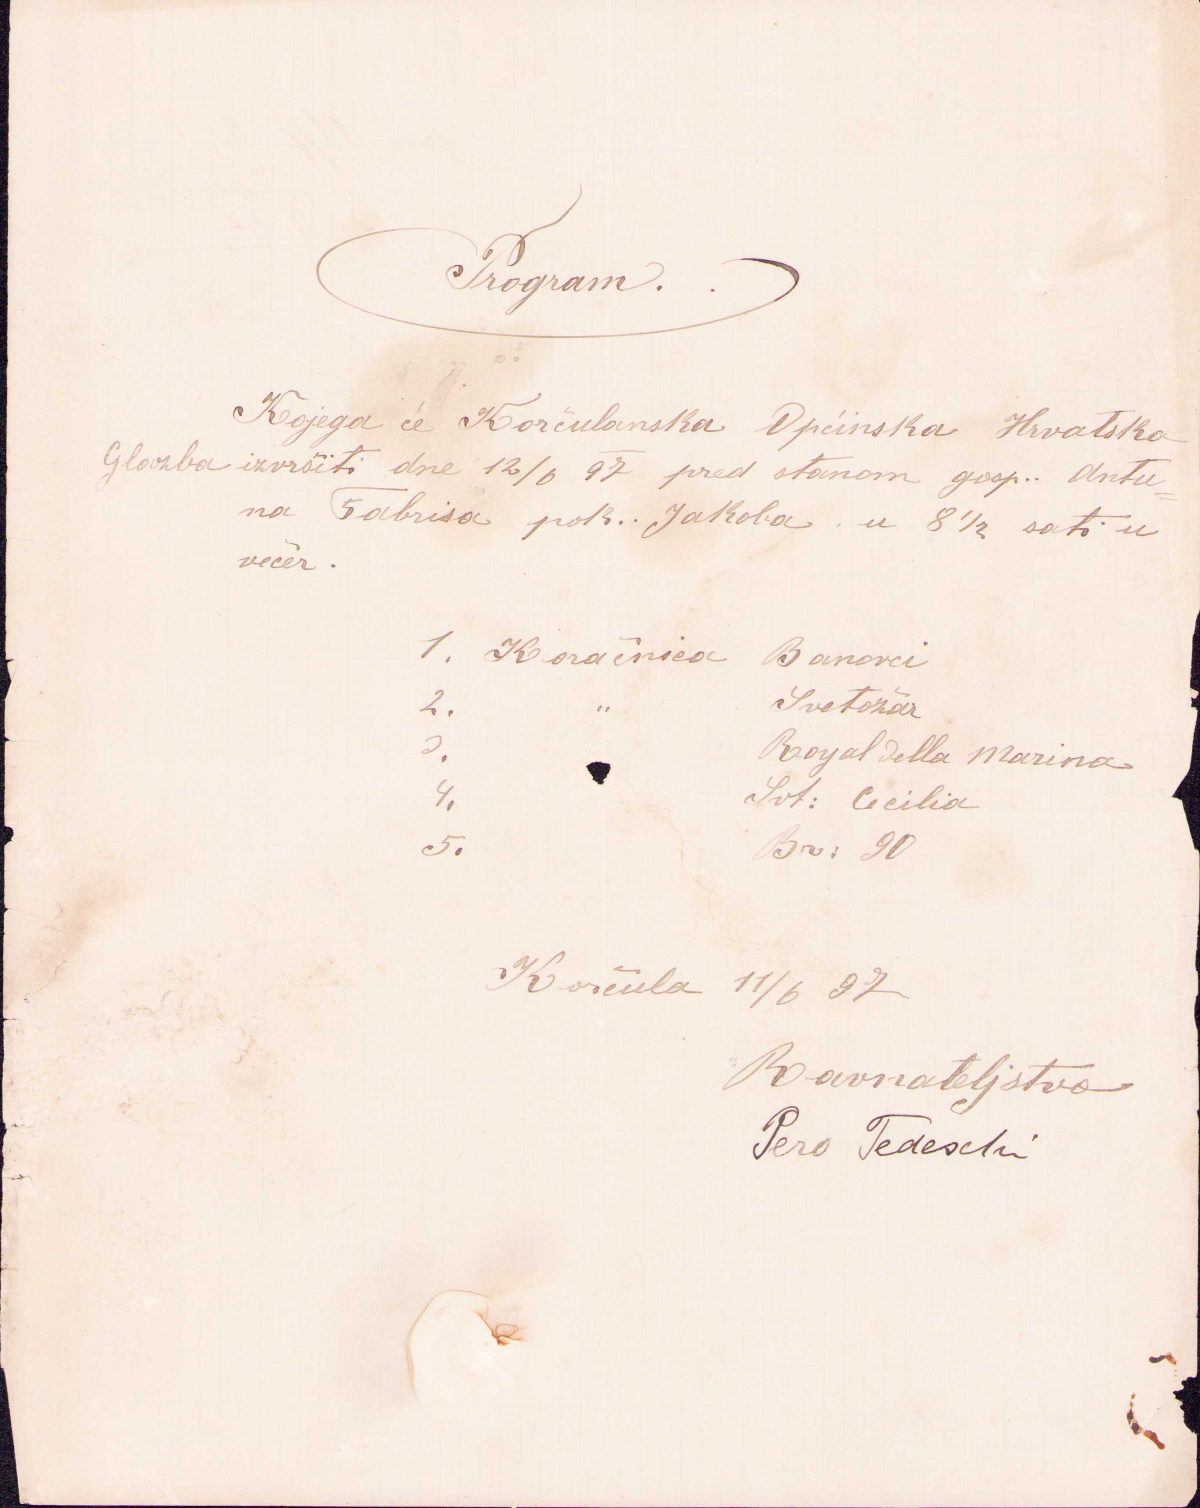 Program.
Kojega će Korčulanska Općinska Hrvatska
Glazba izvršiti dne 12/6 97 pred stanom gosp.. Antu=
na Fabrisa pok.. Jakoba u 8 1/2 sati u
večer.
1. Koračnica Banovci
2. " Svetožar
3. Royal della Marina
4. Svt: Cecilia
5. Br: 90
Korčula 11/6 97
Ravnateljstvo
Pero Tedeschi